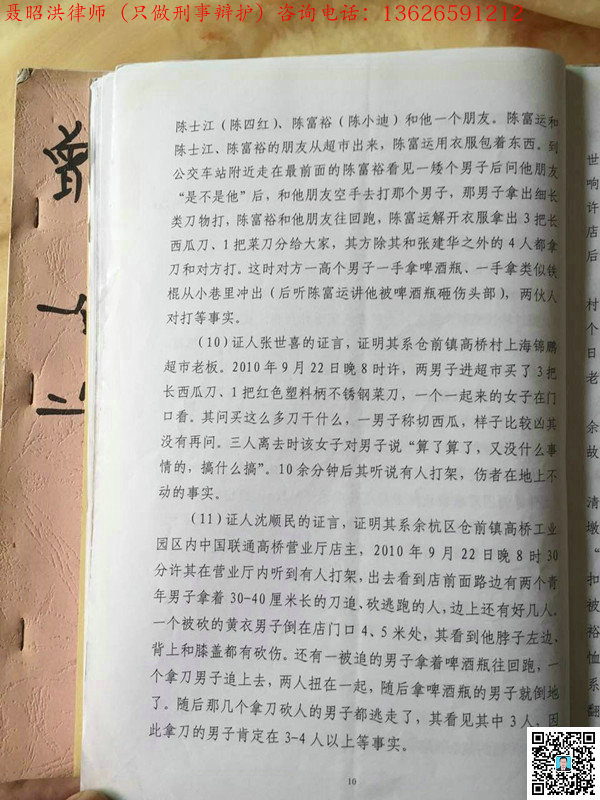 聂昭洪律师（只做刑事辩护）咨询电话：13626591212
陈士江（陈四红）、陈富裕（陈小迪）和他一个朋友。陈富运和
陈士江、陈富裕的朋友从超市出来，陈富运用衣服包着东西。到
公交车站附近走在最前面的陈富裕看见一矮个男子后问他朋友
“是不是他”后，和他朋友空手去打那个男子，那男子拿出细长
类刀物打，陈富裕和他朋友往回跑，陈富运解开衣服拿出 3 把长
西瓜刀、1 把菜刀分给大家，其方除其和张建华之外的 4 人都拿
刀和对方打。这时对方一高个男子一手拿啤酒瓶、一手拿类似铁
棍从小巷里冲出（后听陈富运讲他被啤酒瓶砸伤头部），两伙人
对打等事实。
（10）证人张世喜的证言，证明其系仓前镇高桥村上海锦鹏
超市老板。2010 年 9 月 22 日晚 8 时许，两男子进超市买了 3 把
长西瓜刀、1 把红色塑料柄不锈钢菜刀，一个一起来的女子在门
口看。其问买这么多刀干什么，一男子称切西瓜，样子比较凶其
没有再问。三人离去时该女子对男子说“算了算了，又没什么事
情的，搞什么搞”。10 余分钟后其听说有人打架，伤者在地上不
动的事实。
（11）证人沈顺民的证言，证明其系余杭区仓前镇高桥工业
园区内中国联通高桥营业厅店主，2010 年 9 月 22 日晚 8 时 30
分许其在营业厅内听到有人打架，出去看到店前面路边有两个青
年男子拿着 30-40 厘米长的刀追、砍逃跑的人，边上还有好几人。
一个被砍的黄衣男子倒在店门口 4、5 米处，其看到他脖子左边、
背上和膝盖都有砍伤。还有一被追的男子拿着啤酒瓶往回跑，一
个拿刀男子追上去，两人扭在一起，随后拿啤酒瓶的男子就倒地
了。随后那几个拿刀砍人的男子都逃走了，其看见其中 3 人，因
此拿刀的男子肯定在 3-4 人以上等事实。
10
世
响
许
店
后
村
个
日
老
余
故
清
墩
“
扣
被
裕
恤
系
翻